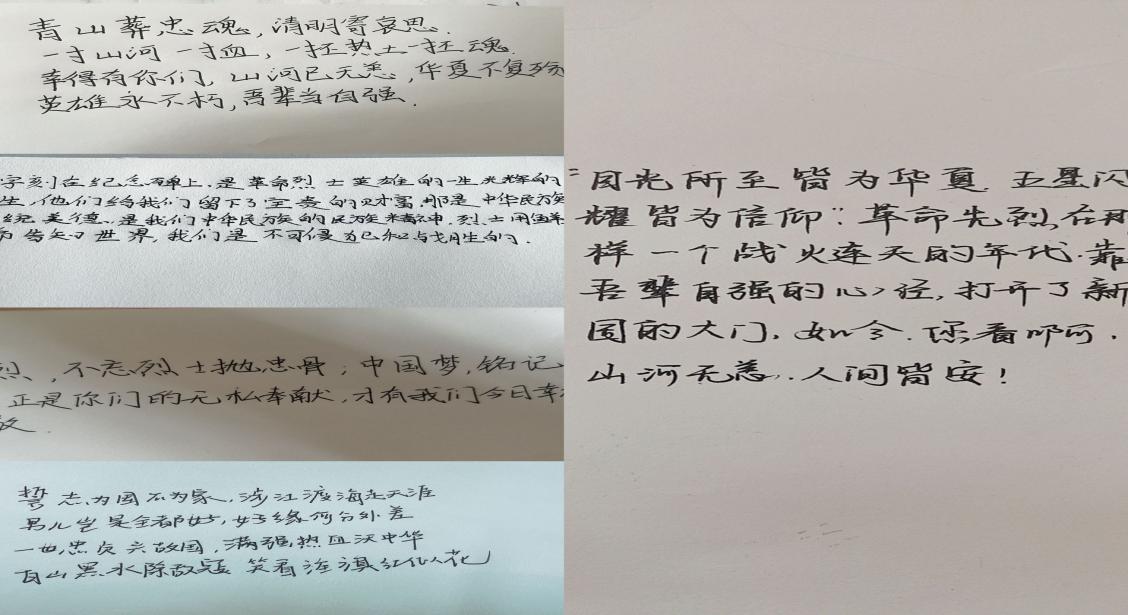 青山葬忠魂，清明寄哀思.
一寸山河一寸血，一抔热土一抔魂.
幸得有你们，山河已无恙，华夏不复殇
英雄永不朽，吾辈当自强.
字刻在纪念碑上.是革命烈士英雄的一生光辉的
生，他们给我们留下了宝贵的财富，那是中华民族
统美德..是我们中华民族的民族精神，烈士用
告知世界，我们是不可侵犯和战胜的.
烈、不忘烈士抛忠骨；中国梦，铭记
正是你们的无私奉献，才有我们今日幸
敬.
誓志为国不为家，涉江渡海走天涯
男儿岂是全都好，好缘何分外差
一世忠贞兴故国，满强热血沃中华
白山黑水除敌寇 笑看旌旗红似花
“目光所至皆为华夏.五星闪
耀皆为信仰”：革命先烈在那
样一个战火连天的年代.靠
吾辈自强的心经，打开了新
国的大门，如今.你看啊，
山河无恙..人间皆安！